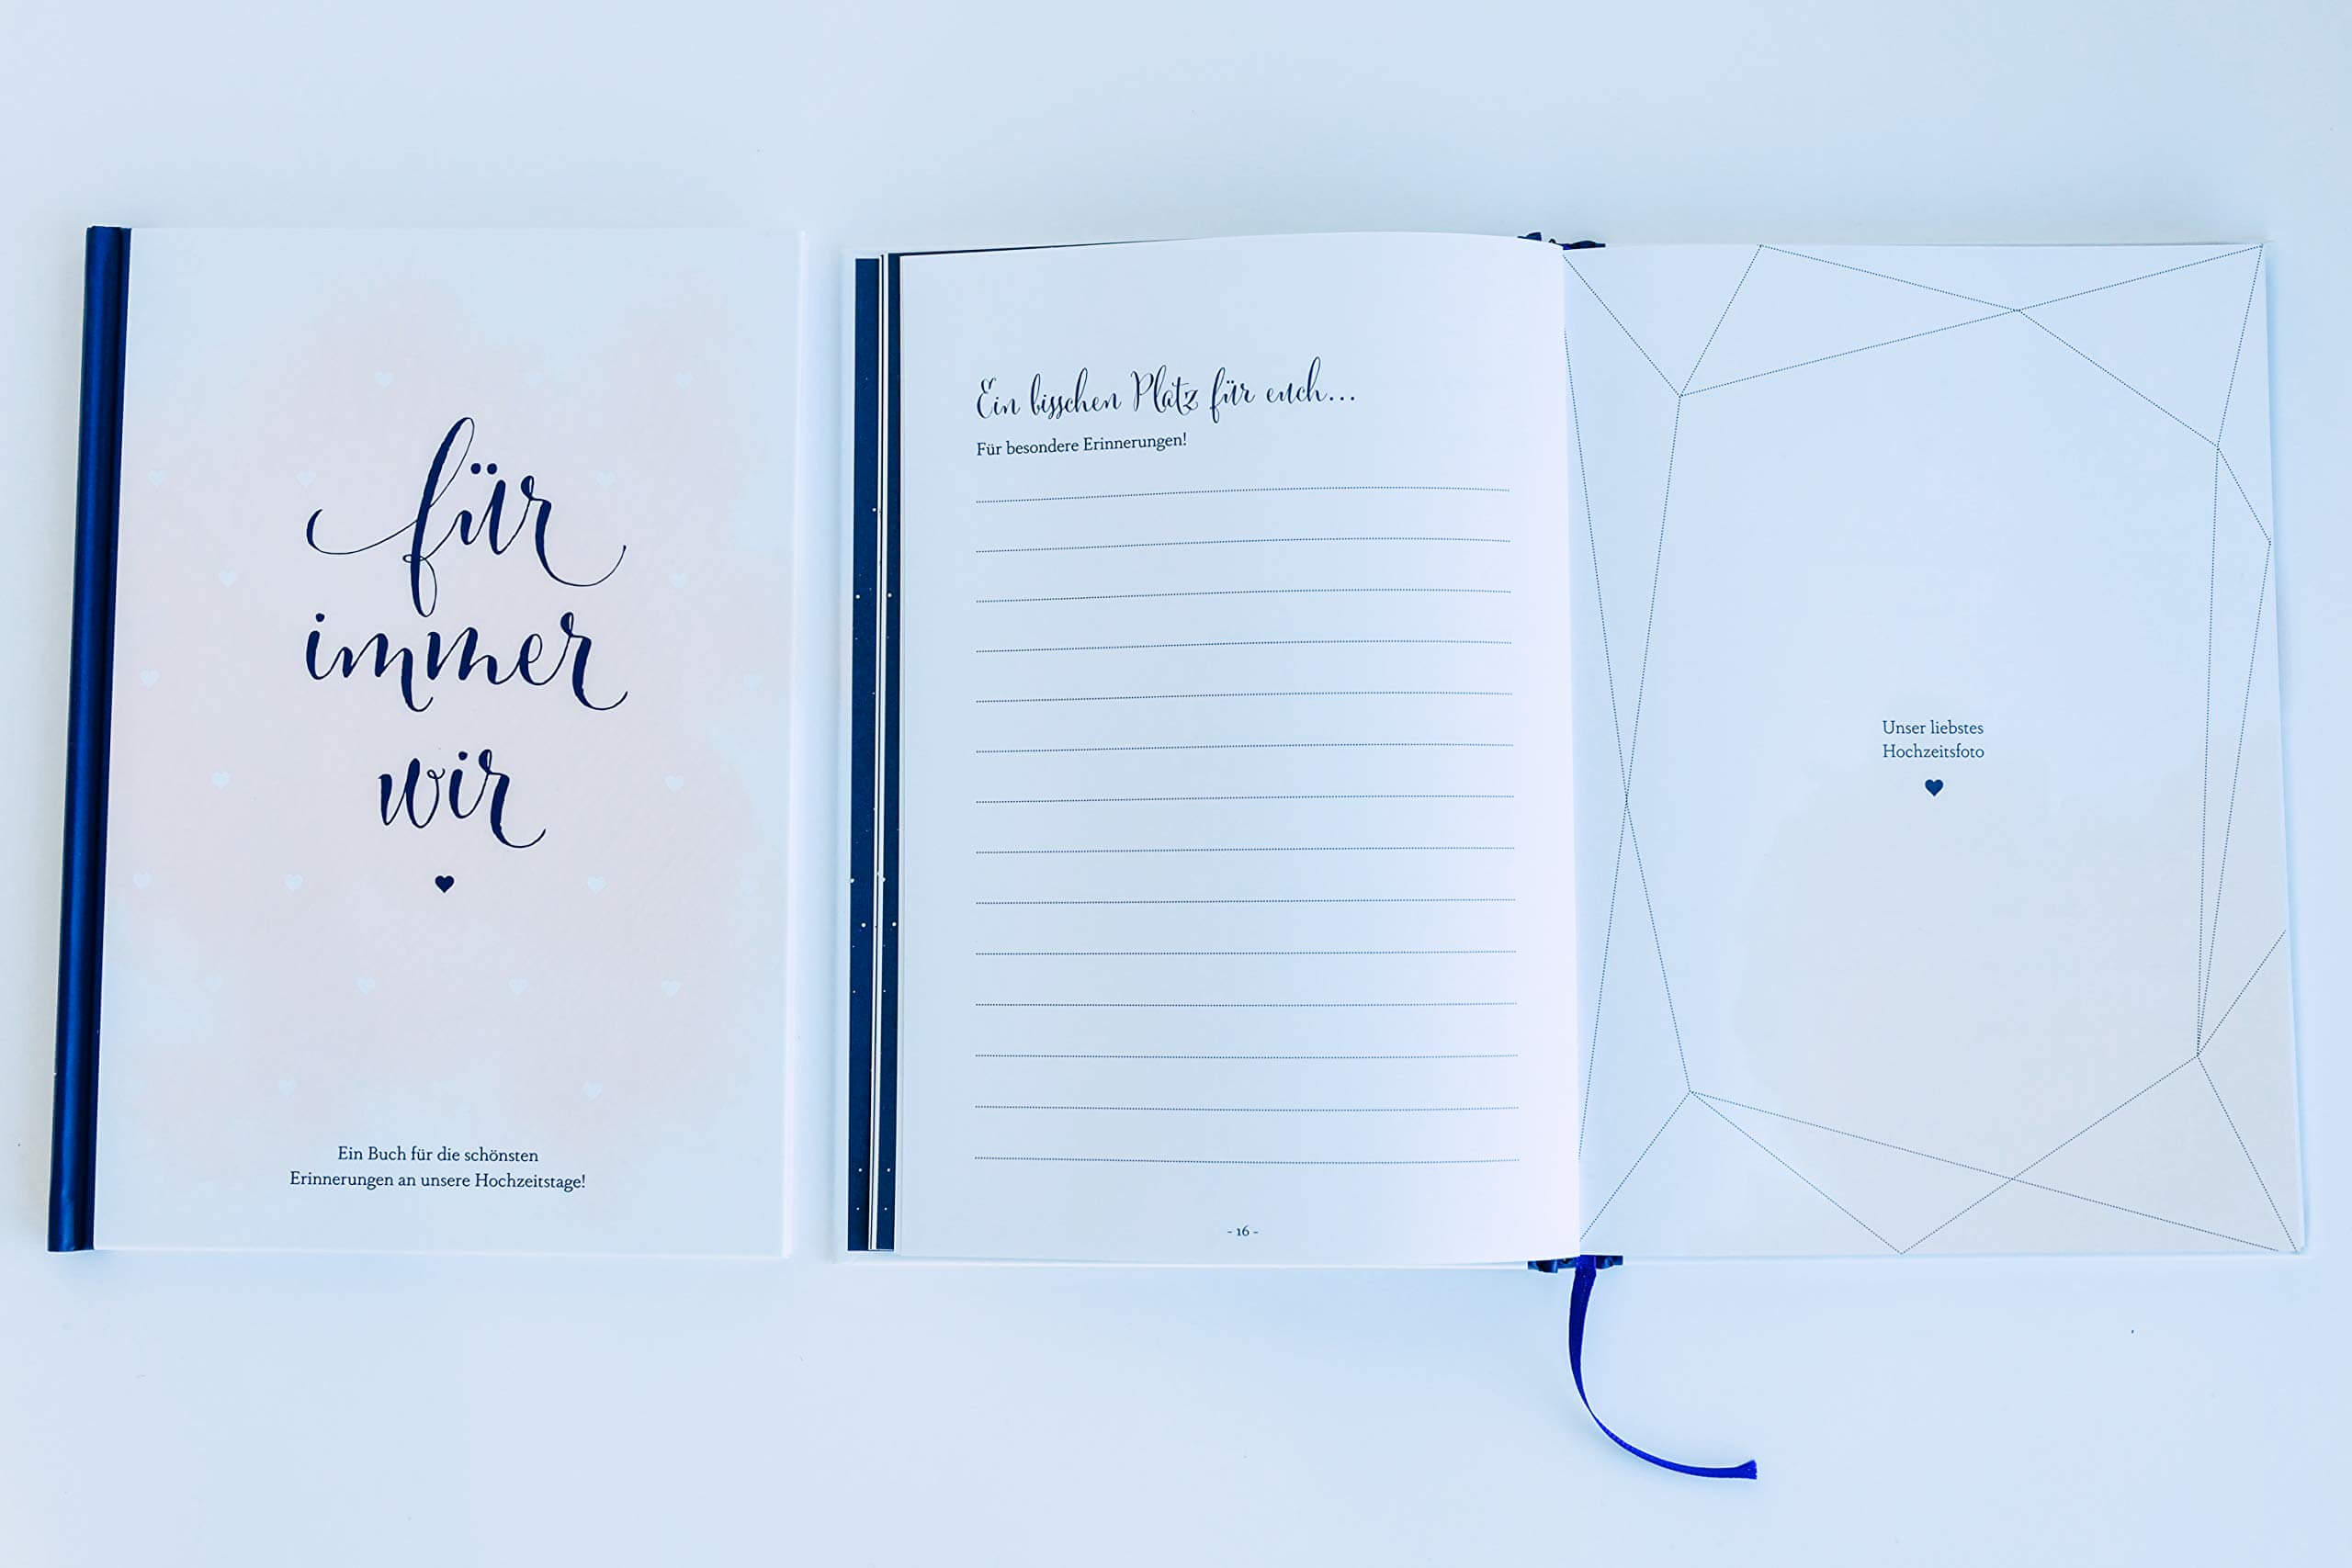 für
immer
wir
Ein Buch für die schönsten
Erinnerungen an unsere Hochzeitstage!
Ein bisschen Platz für euch...
Für besondere Erinnerungen!
- 16 -
Unser liebstes
Hochzeitsfoto